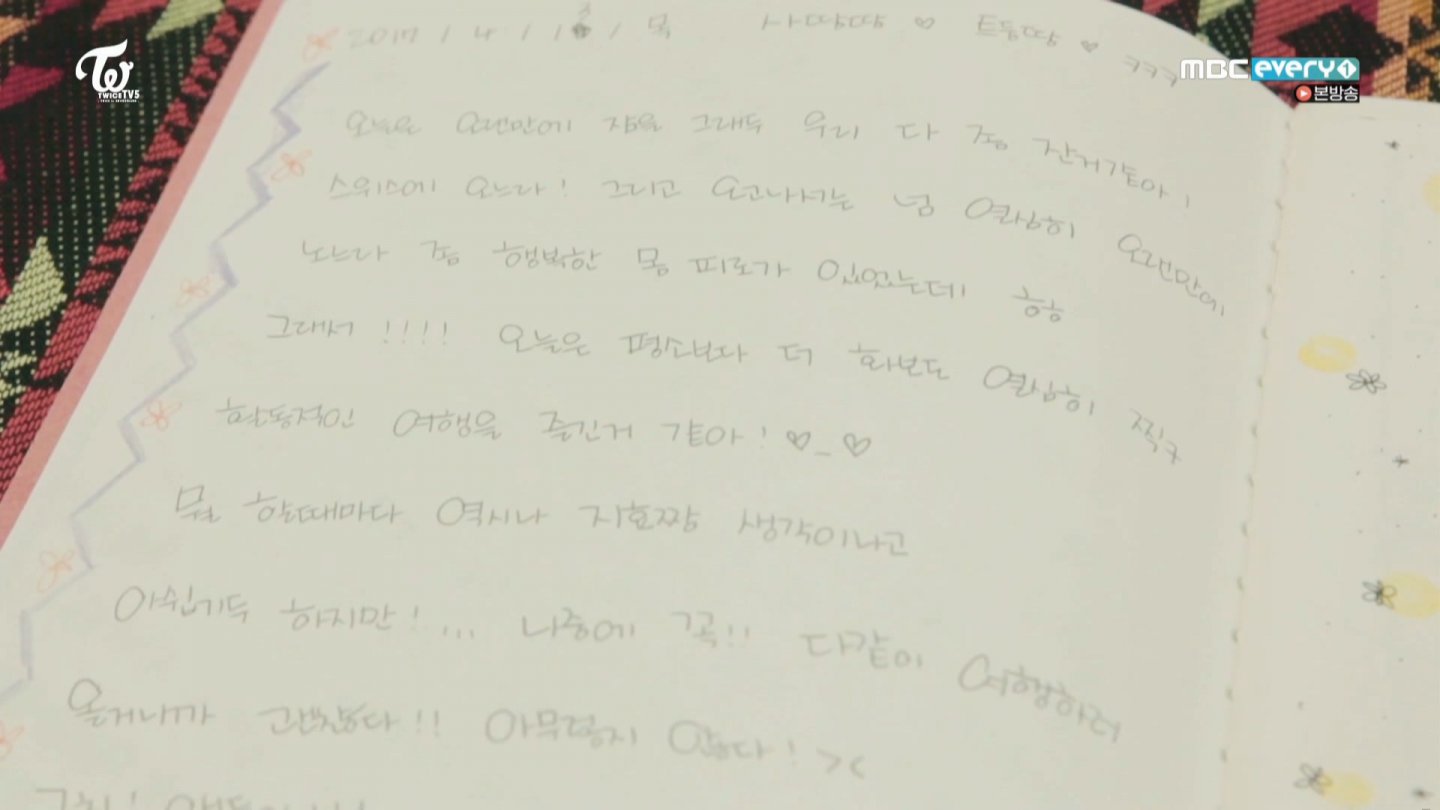 TWICE TV5
MBC every1
본방송
2017 / 4 / 13 / 목 사땅땅 ♡ 트둥땅 ♡ ㅋㅋㅋ
오늘은 오랜만에 잠을 그래두 우리 다 좀 잔거같아!
스위스에 오느라! 그리고 오고나서는 넘 열심히 오랜만에
노느라 좀 행복한 몸 피로가 있었는데 힝
그래서!!!! 오늘은 평소보다 더 화보도 열심히 찍ㅋ
활동적인 여행을 즐긴거 같아! ♡_♡
뭘 할때마다 역시나 지효짱 생각이나고
아쉽기두 하지만!... 나중에 꼭!! 다같이 여행하러
올거니까 괜찮다!! 아무렇지 않다! ><